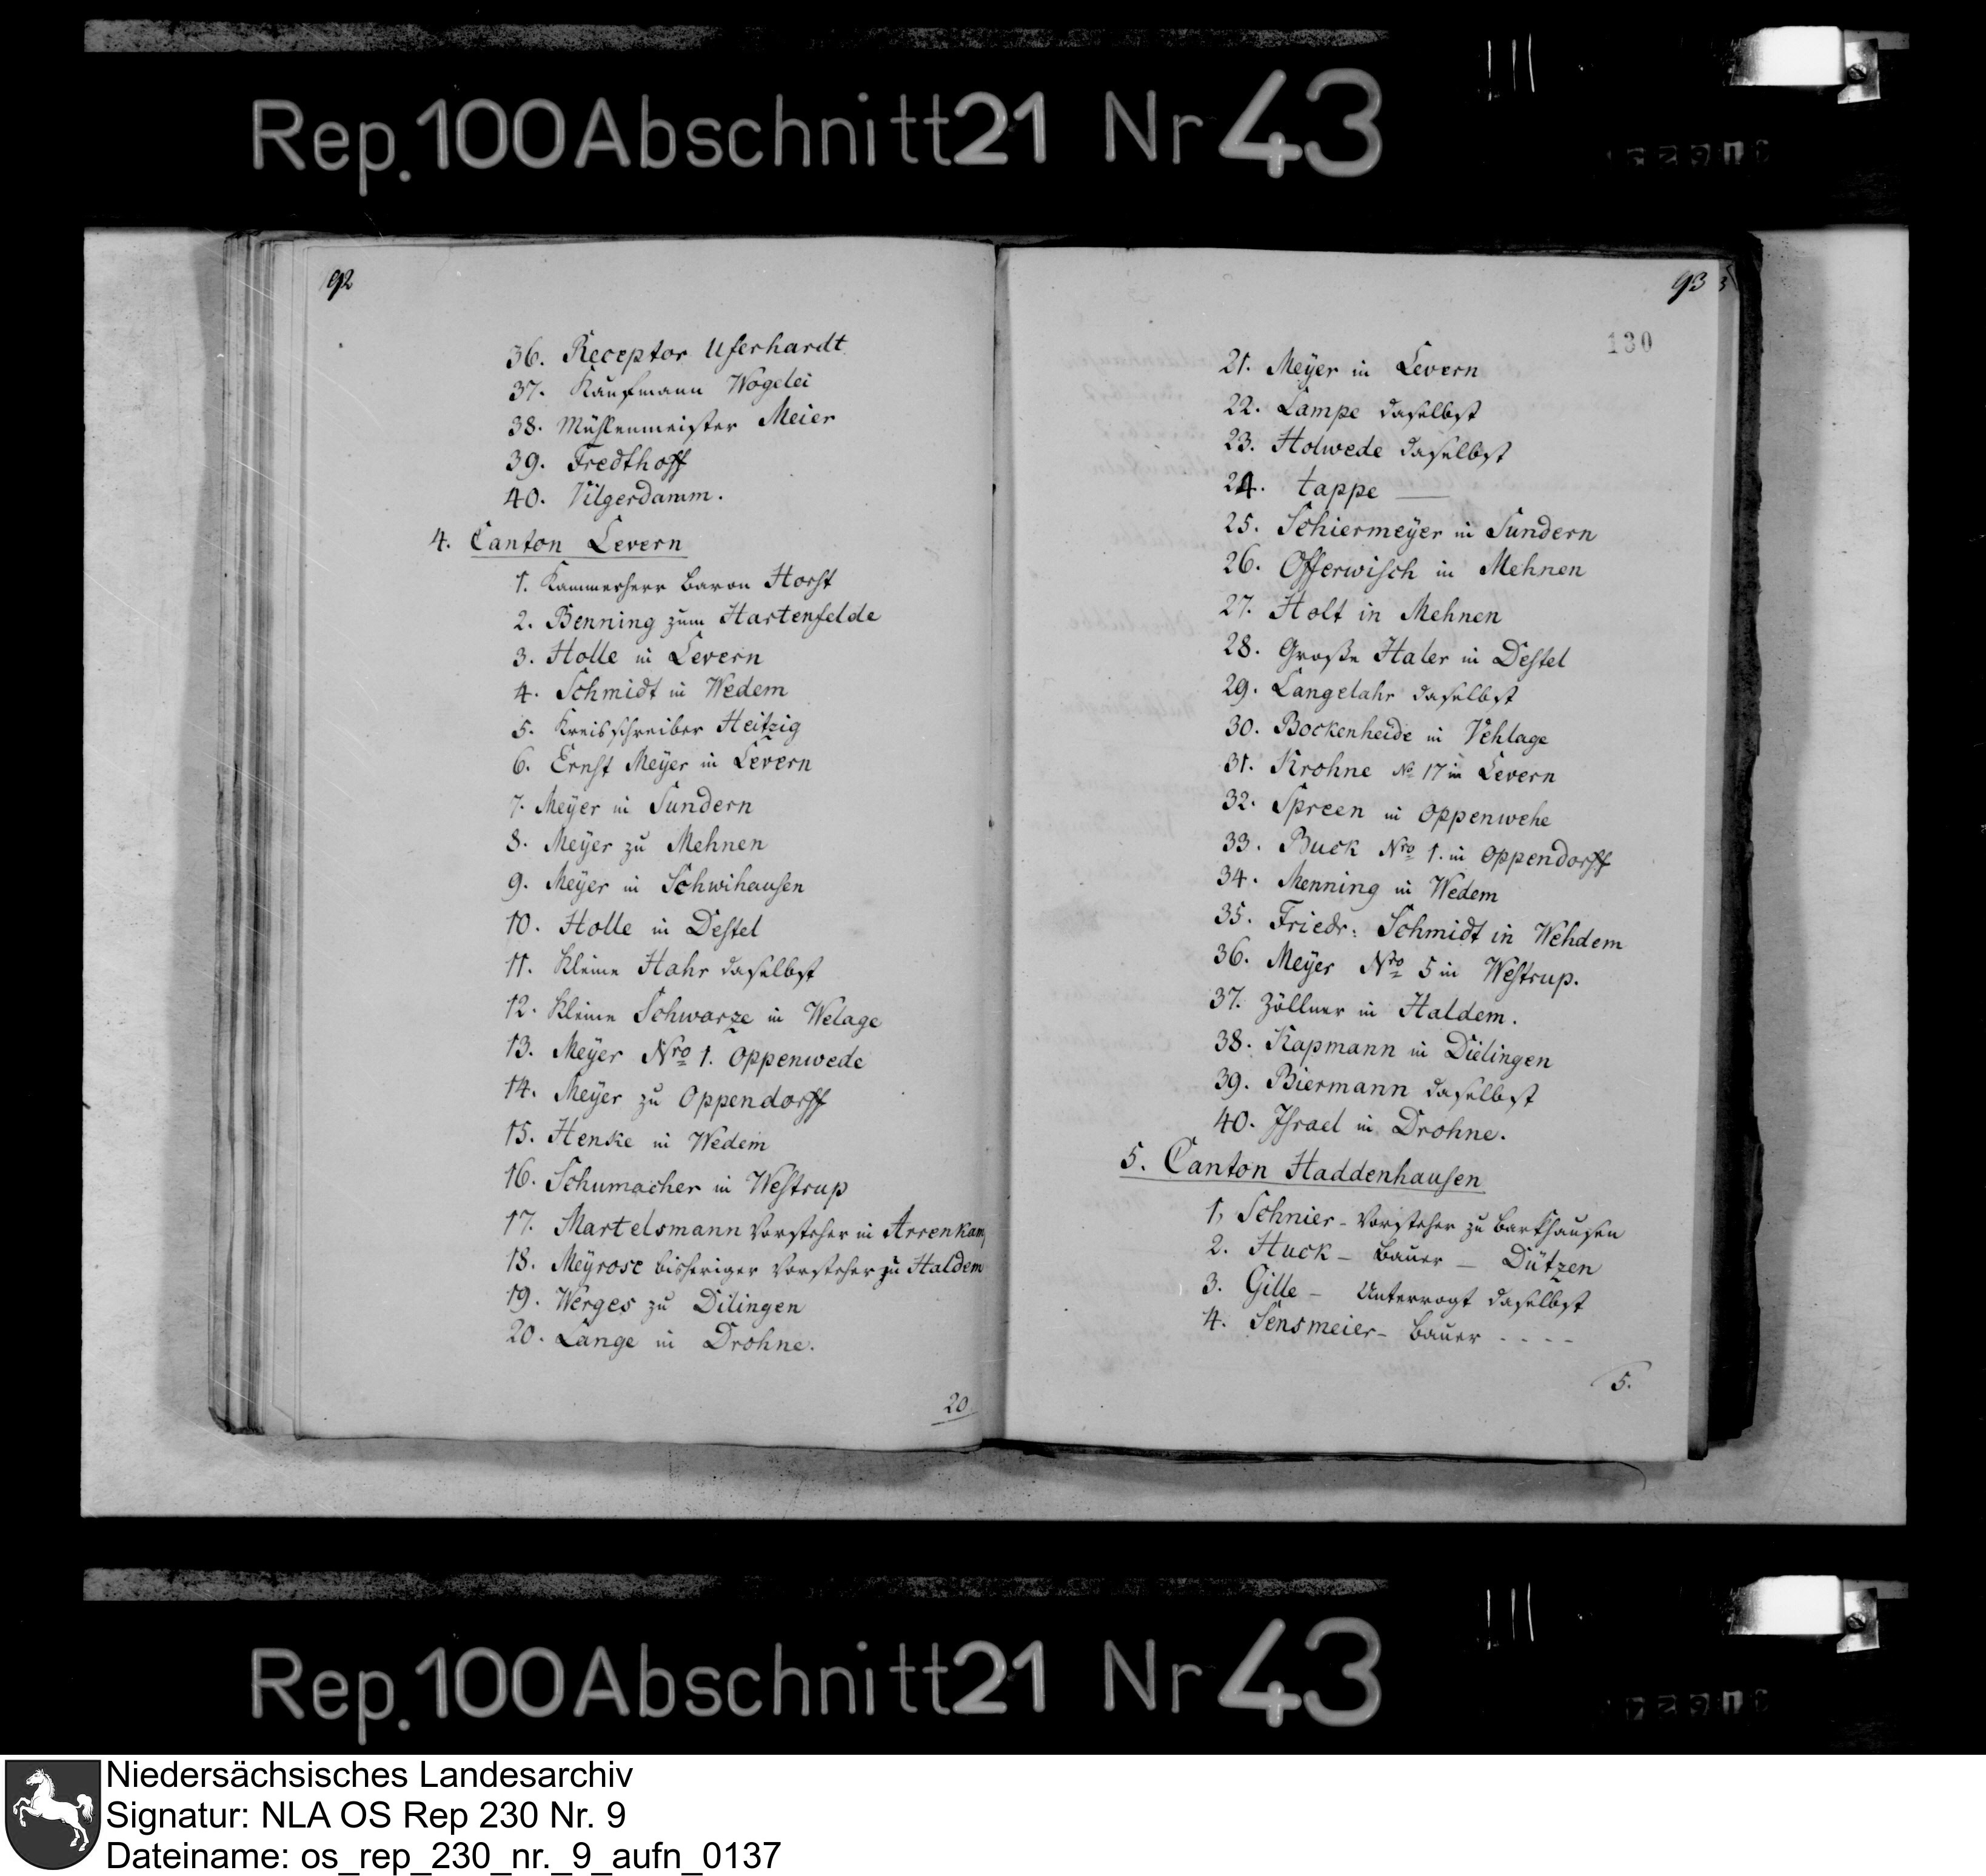 Rep.100Abschnitt21 Nr 43
92
36. Receptor Uferhardt
37. Kaufmann Wogelei
38. Mühlenmeister Meier
39. Fredthoff
40. Vilgerdamm.
4. Canton Levern
1. Kammerherr Baron Horst
2. Benning zum Hartenfelde
3. Holle in Levern
4. Schmidt in Wedem
5. Kreisschreiber Heitzig
6. Ernst Meyer in Levern
7. Meyer in Sundern
8. Meyer zu Mehnen
9. Meyer in Schwihausen
10. Holle in Destel
11. Kleine Hahr daselbst
12. Kleine Schwarze in Welage
13. Meyer Nro 1. Oppenwede
14. Meyer zu Oppendorff
15. Henke in Wedem
16. Schumacher in Westrup
17. Martelsmann Vorsteher in Arrenkamp
18. Meyrose bisheriger Vorsteher zu Haldem
19. Werges zu Dilingen
20. Lange in Drohne.
20
93
130
21. Meyer in Levern
22. Lampe daselbst
23. Holwede daselbst
24. tappe —
25. Schiermeyer in Sundern
26. Offerwisch in Mehnen
27. Holt in Mehnen
28. Große Haler in Destel
29. Langelahr daselbst
30. Bockenheide in Vehlage
31. Krohne No 17 in Levern
32. Spreen in Oppenwehe
33. Buck Nro 1. in Oppendorff
34. Menning in Wedem
35. Friedr: Schmidt in Wehdem
36. Meyer Nro 5 in Westrup.
37. Zöllner in Haldem.
38. Kapmann in Dielingen
39. Biermann daselbst
40. Israel in Drohne.
5. Canton Haddenhausen
1, Schnier - Vorsteher zu Barkhausen
2. Huck - Bauer - Dützen
3. Gille - Untervogt daselbst
4. Sensmeier - Bauer - - - -
5.
Rep.100Abschnitt21 Nr 43
Niedersächsisches Landesarchiv
Signatur: NLA OS Rep 230 Nr. 9
Dateiname: os_rep_230_nr._9_aufn_0137